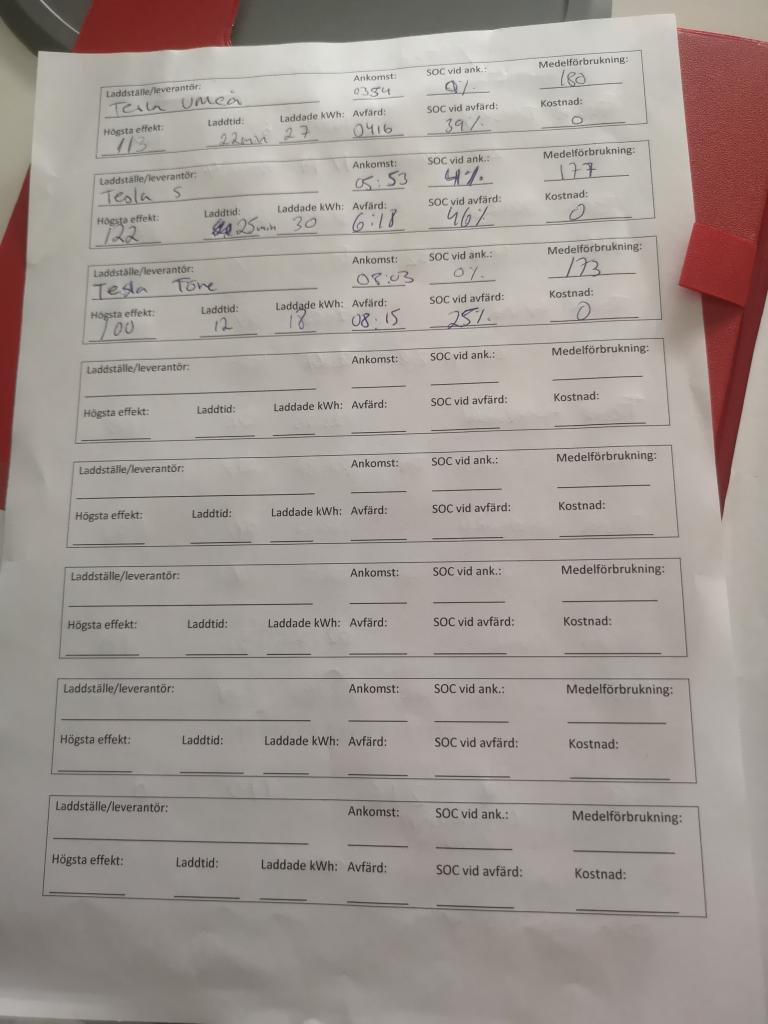 Laddställe/leverantör: Tesla Umeå Ankomst: 0354 SOC vid ank.: 0% Medelförbrukning: 180
Högsta effekt: 113 Laddtid: 22min Laddade kWh: 27 Avfärd: 0416 SOC vid avfärd: 39% Kostnad: 0
Laddställe/leverantör: Tesla S Ankomst: 05:53 SOC vid ank.: 4% Medelförbrukning: 177
Högsta effekt: 122 Laddtid: 25min Laddade kWh: 30 Avfärd: 6:18 SOC vid avfärd: 46% Kostnad: 0
Laddställe/leverantör: Tesla Töre Ankomst: 08:03 SOC vid ank.: 0% Medelförbrukning: 173
Högsta effekt: 100 Laddtid: 12 Laddade kWh: 18 Avfärd: 08:15 SOC vid avfärd: 25% Kostnad: 0
Laddställe/leverantör: Ankomst: SOC vid ank.: Medelförbrukning:
Högsta effekt: Laddtid: Laddade kWh: Avfärd: SOC vid avfärd: Kostnad:
Laddställe/leverantör: Ankomst: SOC vid ank.: Medelförbrukning:
Högsta effekt: Laddtid: Laddade kWh: Avfärd: SOC vid avfärd: Kostnad:
Laddställe/leverantör: Ankomst: SOC vid ank.: Medelförbrukning:
Högsta effekt: Laddtid: Laddade kWh: Avfärd: SOC vid avfärd: Kostnad:
Laddställe/leverantör: Ankomst: SOC vid ank.: Medelförbrukning:
Högsta effekt: Laddtid: Laddade kWh: Avfärd: SOC vid avfärd: Kostnad:
Laddställe/leverantör: Ankomst: SOC vid ank.: Medelförbrukning:
Högsta effekt: Laddtid: Laddade kWh: Avfärd: SOC vid avfärd: Kostnad: